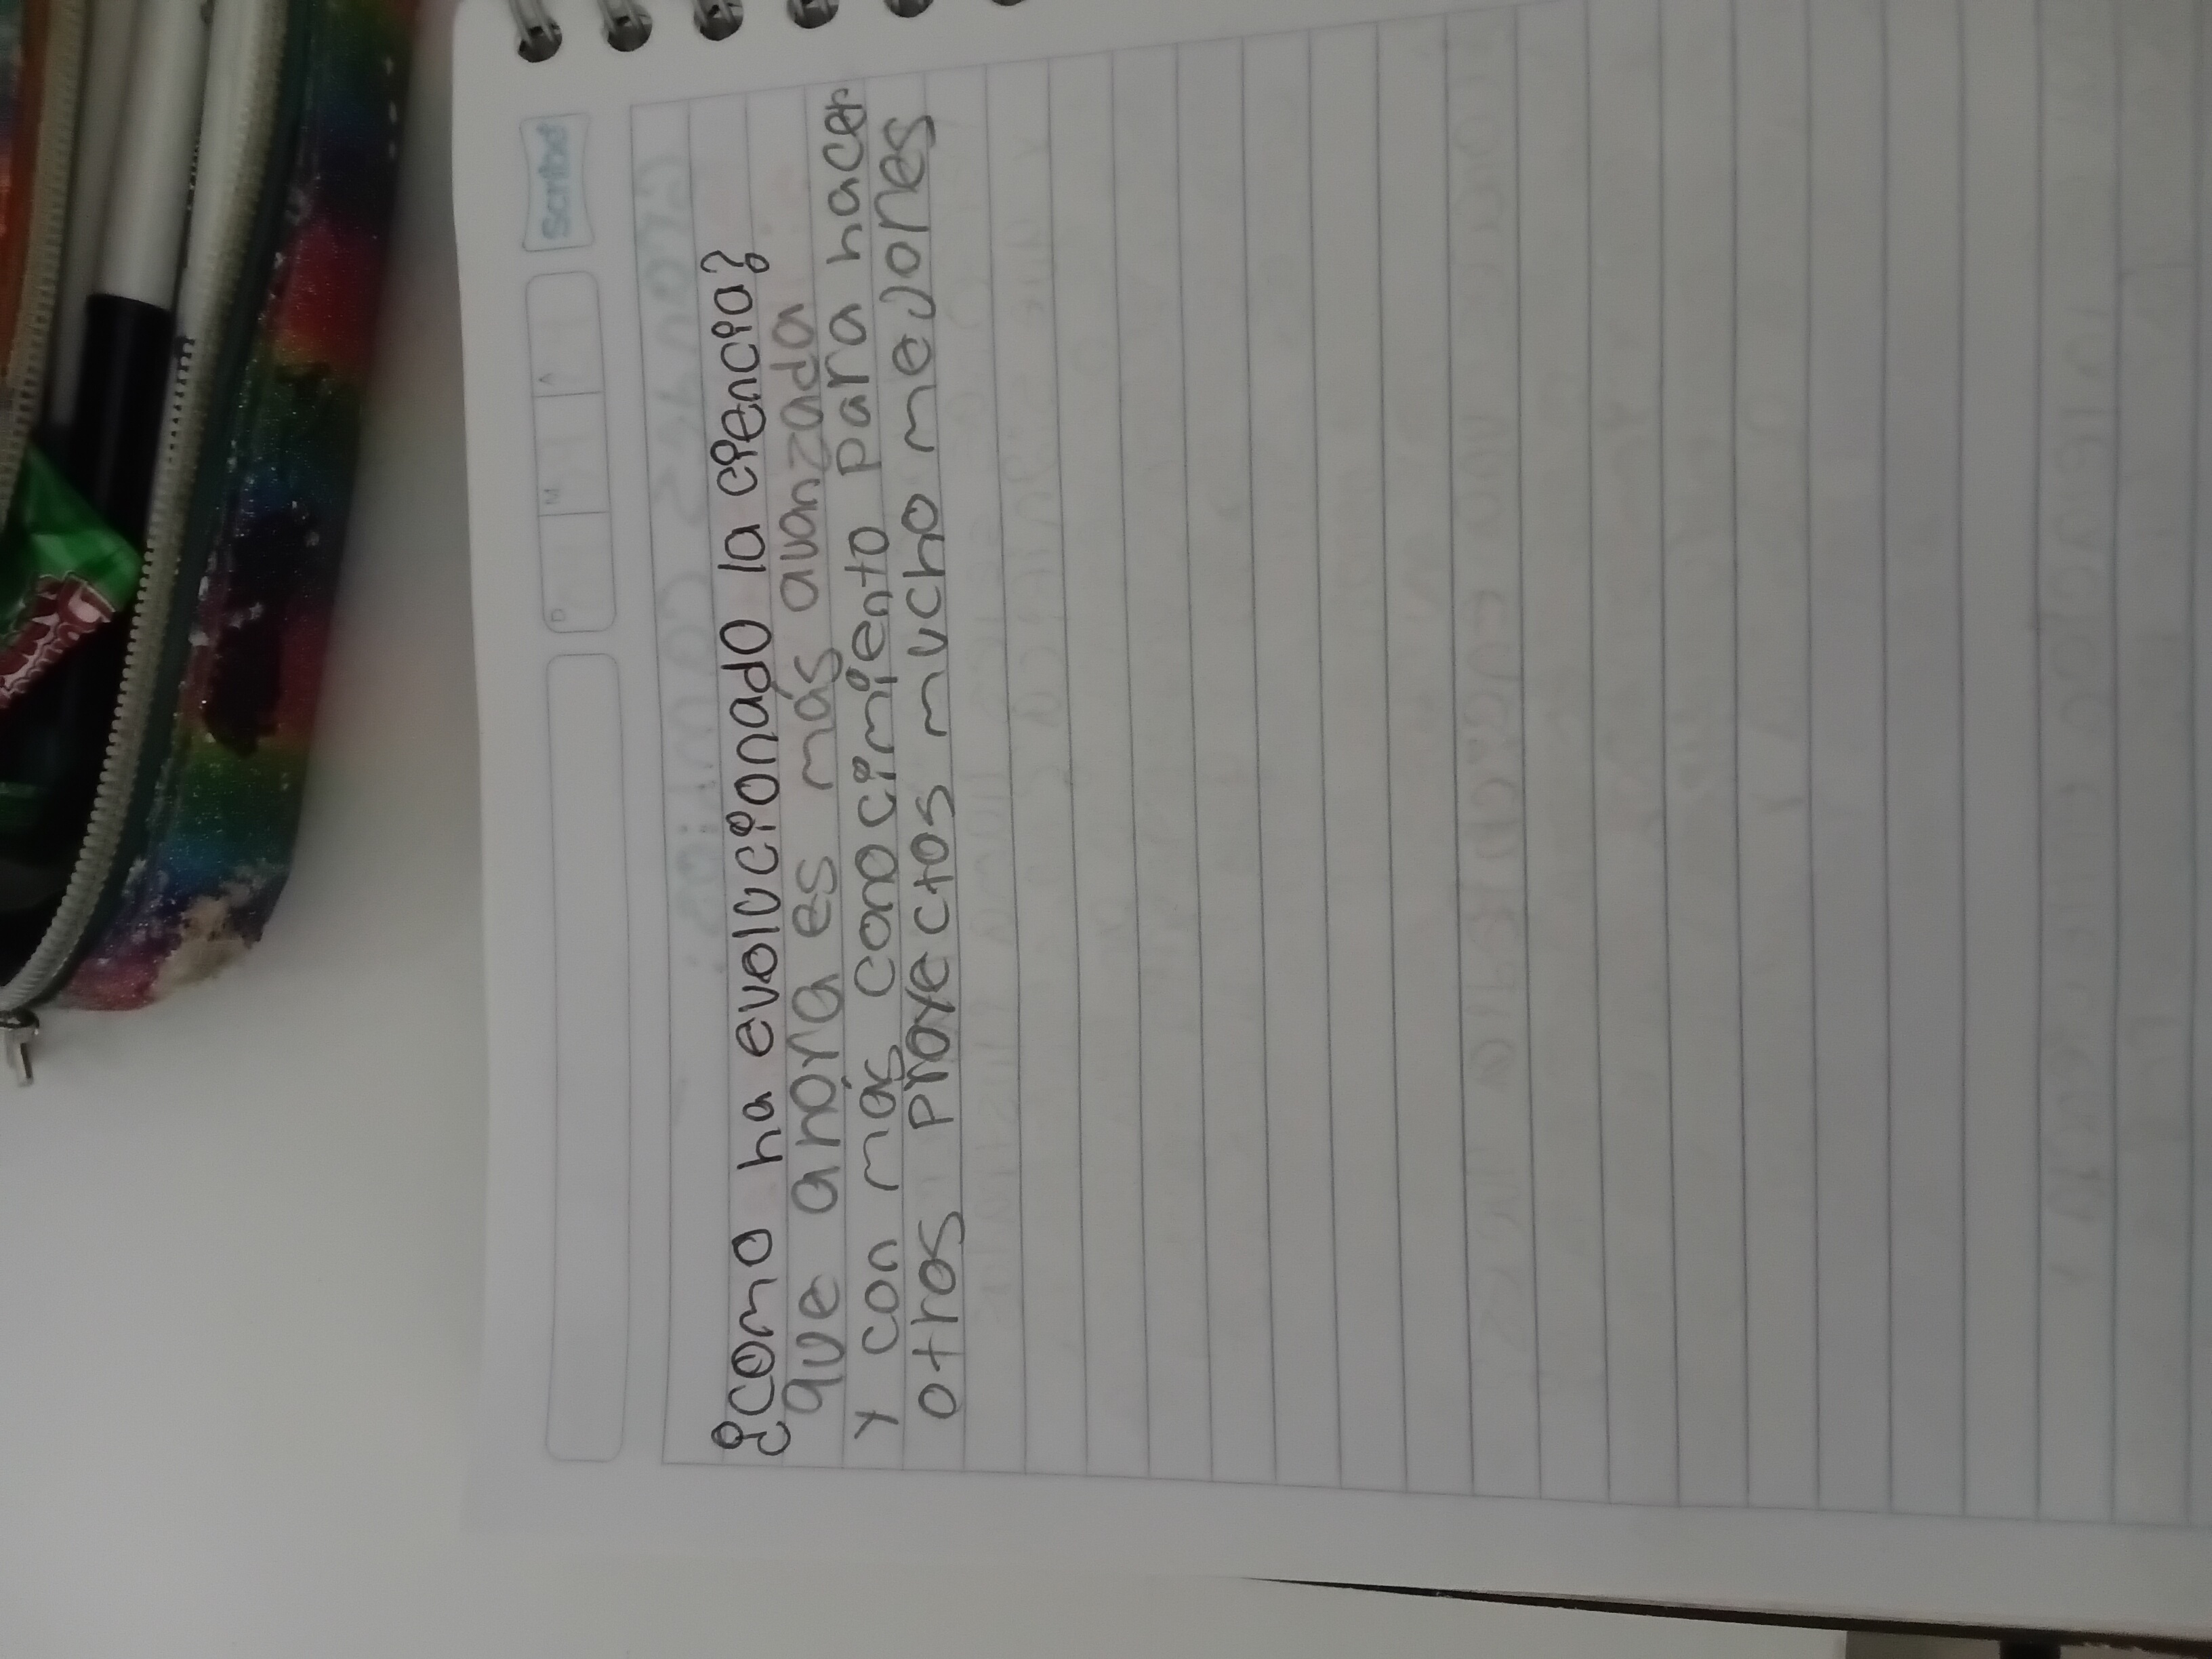 Scribe
D M A
¿Como ha evolucionado la ciencia?
que ahora es más avanzada
y con más conocimiento para hacer
otros proyectos mucho mejores